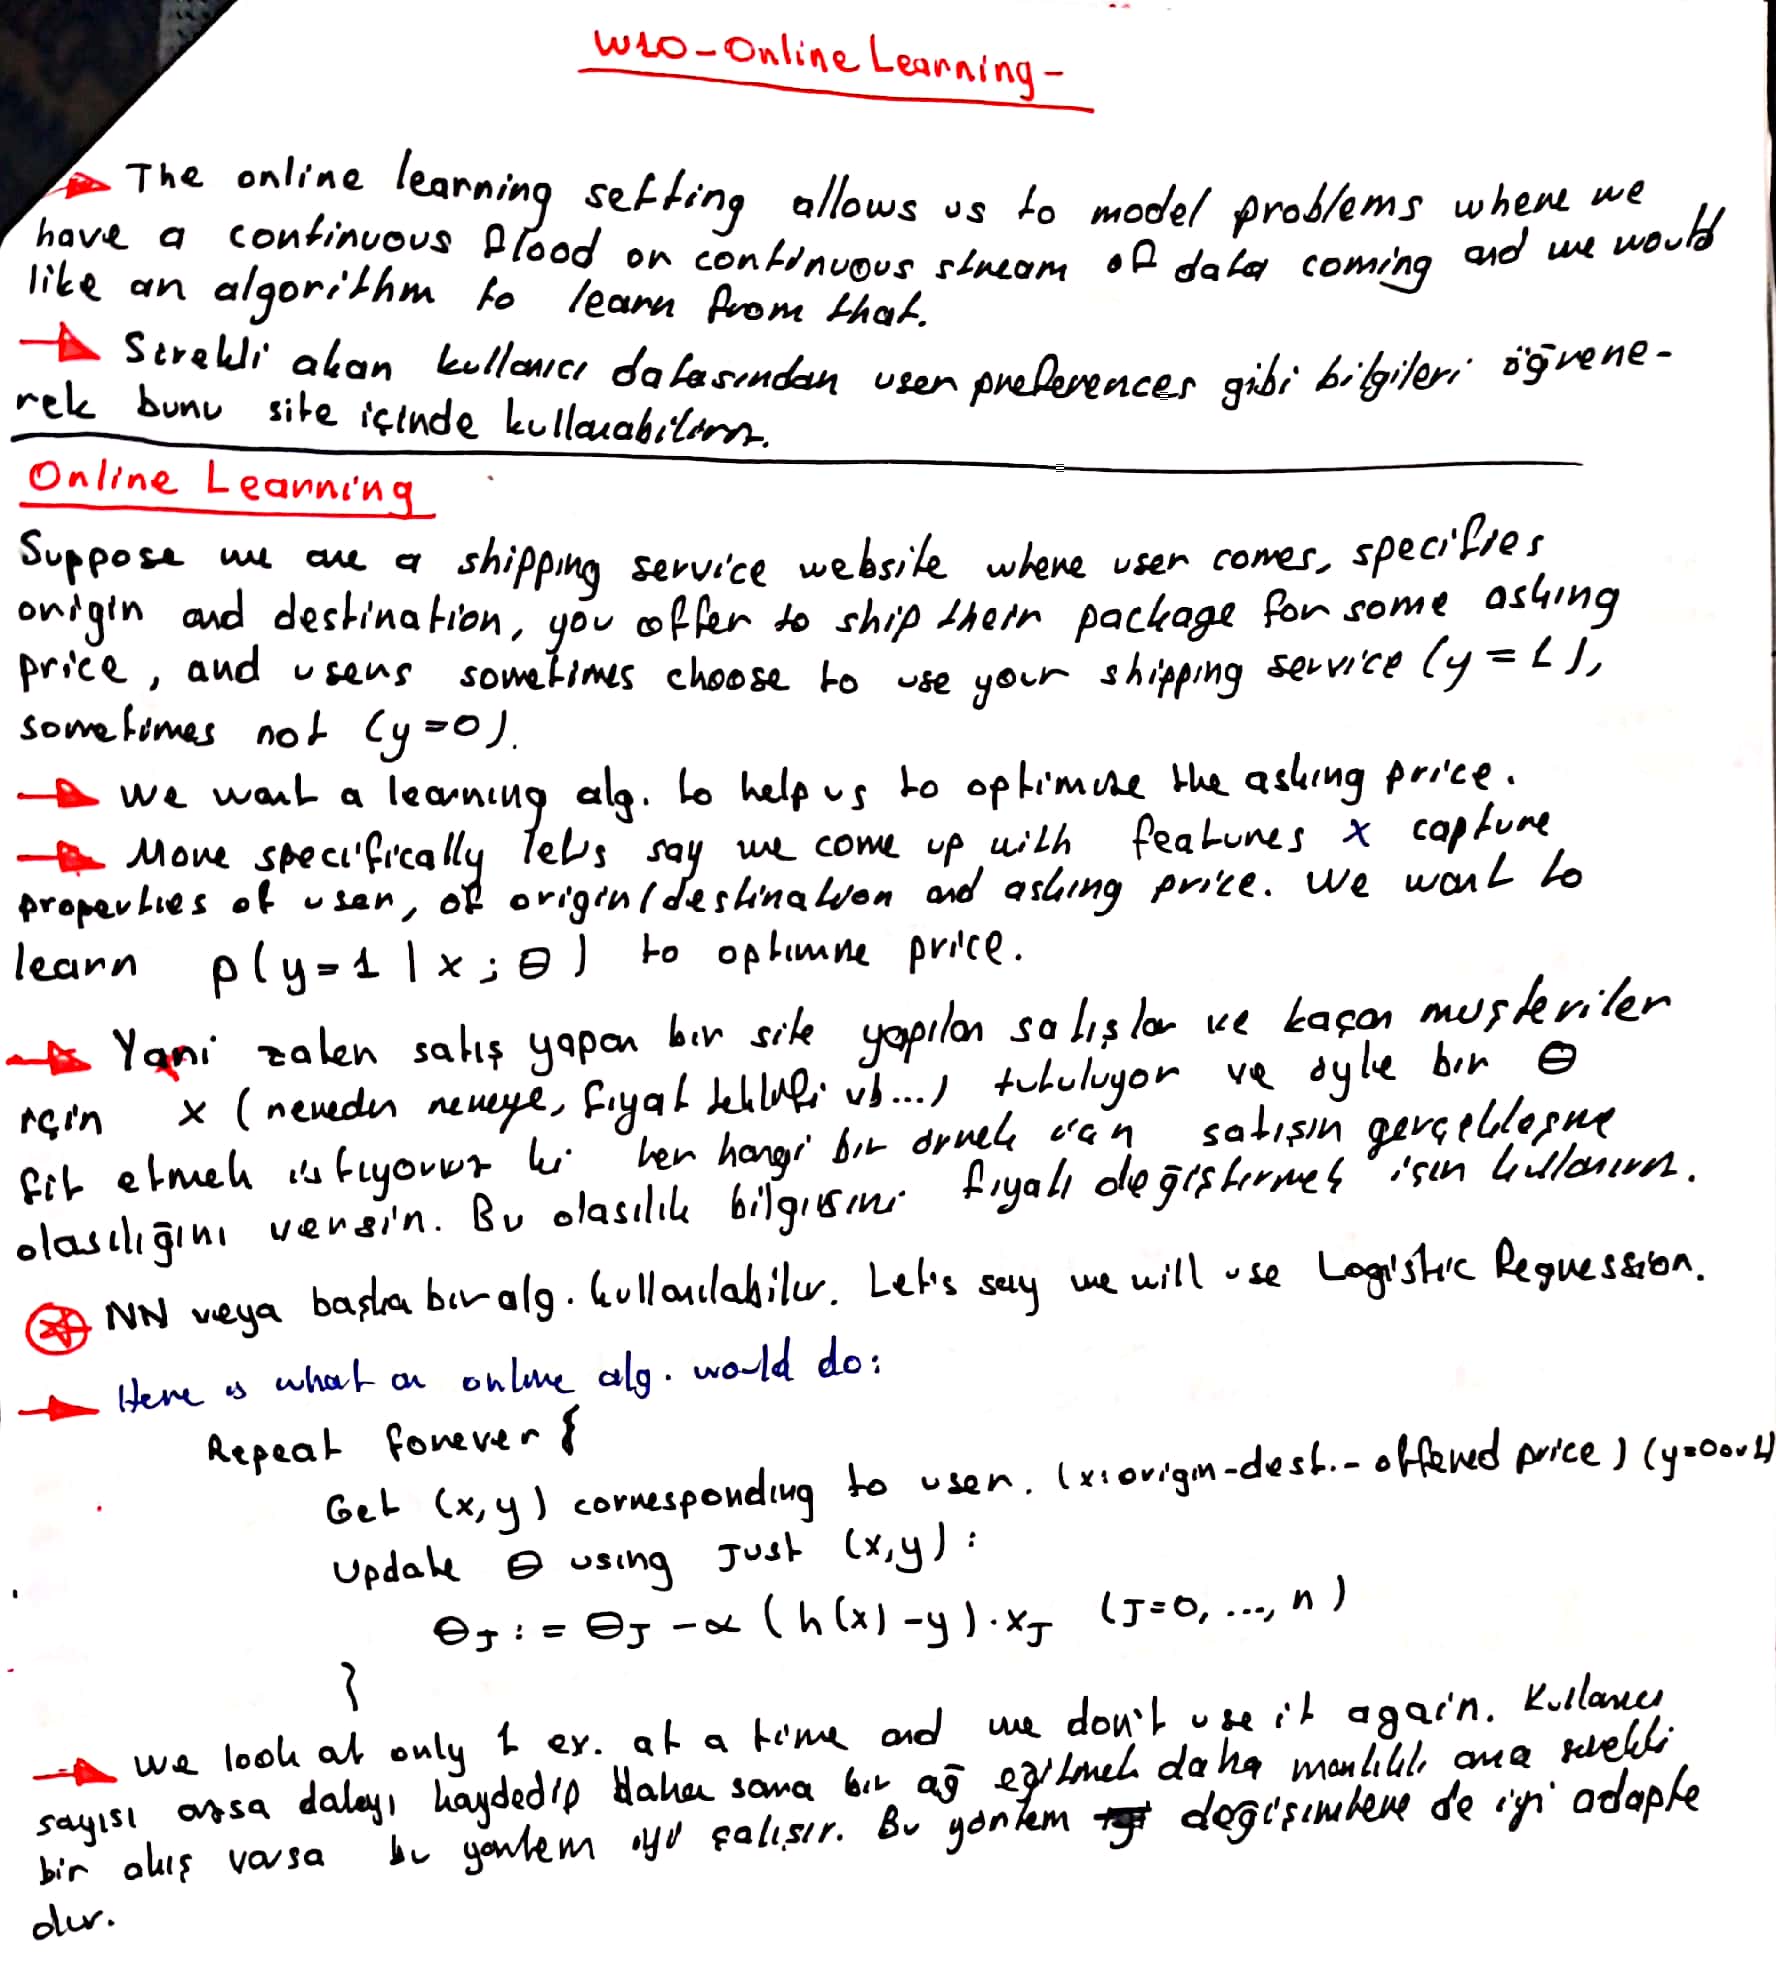 W10-Online Learning-
The online learning setting allows us to model problems where we
have a continuous flood or continuous stream of data coming and we would
like an algorithm to learn from that.
Sürekli akan kullanıcı datasından user preferences gibi bilgileri öğrene-
rek bunu site içinde kullanabiliriz.
Online Learning
Suppose we are a shipping service website where user comes, specifies
origin and destination, you offer to ship their package for some asking
price, and users sometimes choose to use your shipping service (y=1),
sometimes not (y=0).
We want a learning alg. to help us to optimize the asking price.
More specifically let's say we come up with features x capture
properties of user, of origin/destination and asking price. We want to
learn p(y=1|x;θ) to optimize price.
Yani zaten satış yapan bir site yapılan satışlar ve kaçan müşteriler
için x (nereden nereye, fiyat teklifi vb...) tutuluyor ve öyle bir θ
fit etmek istiyoruz ki her hangi bir örnek için satışın gerçekleşme
olasılığını versin. Bu olasılık bilgisini fiyatı değiştirmek için kullanırız.
NN veya başka bir alg. kullanılabilir. Let's say we will use Logistic Regression.
Here is what an online alg. would do:
Repeat forever {
Get (x,y) corresponding to user. (x: origin-dest.-offered price) (y=0 or 1)
Update θ using Just (x,y):
θJ := θJ - α (h(x) - y) · xJ (J=0, ..., n)
}
We look at only 1 ex. at a time and we don't use it again. Kullanıcı
sayısı azsa datayı kaydedip daha sonra bir ağ eğitmek daha mantıklı ama sürekli
bir akış varsa bu yöntem iyi çalışır. Bu yöntem değişimlere de iyi adapte
olur.